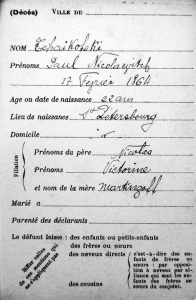 (Décès) VILLE DE
NOM Tchaikolski
Prénoms Paul Nicolaevitch
17 Février 1864
Age ou date de naissance 22 ans
Lieu de naissance St Petersbourg
Domicile
Filiation
Prénoms du père Nicolas
Prénoms Victorine
et nom de la mère
Marié a
Parenté des déclarants
Le défunt laisse : des enfants ou petits-enfants
des frères ou sœurs
des neveux directs
des cousins
c'est-à-dire des enfants de frères et sœurs : par opposition à neveux par alliance qui sont les enfants des frères ou sœurs du conjoint.